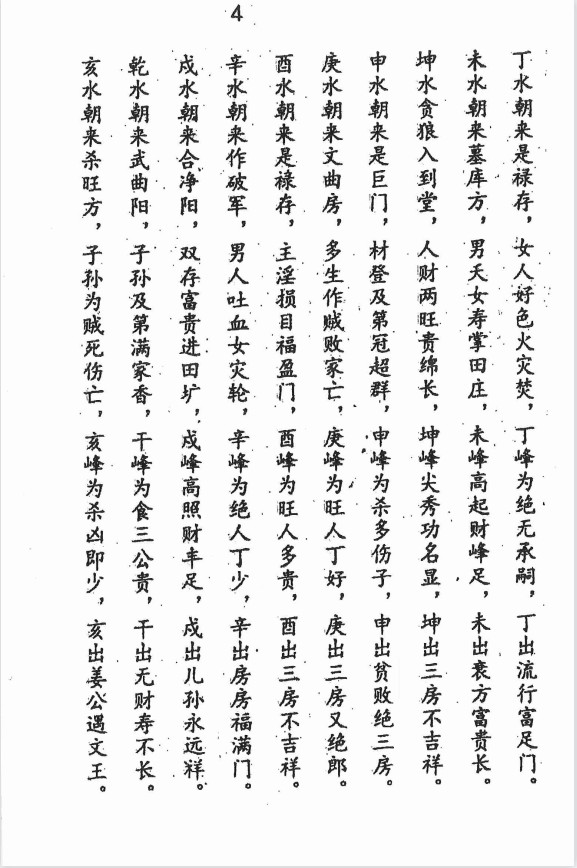 4
丁水朝来是禄存，女人好色火灾焚，丁峰为绝无承嗣，丁出流行富足门。
未水朝来墓库方，男夭女寿掌田庄，未峰高起财峰足，未出衰方富贵长。
坤水贪狼入到堂，人财两旺贵绵长，坤峰尖秀功名显，坤出三房不吉祥。
申水朝来是巨门，材登及第冠超群，申峰为杀多伤子，申出贫败绝三房。
庚水朝来文曲房，多生作贼败家亡，庚峰为旺人丁好，庚出三房又绝郎。
酉水朝来是禄存，主淫损目福盈门，酉峰为旺人多贵，酉出三房不吉祥。
辛水朝来作破军，男人吐血女灾轮，辛峰为绝人丁少，辛出房房福满门。
戍水朝来合净阳，双存富贵进田圹，戍峰高照财丰足，戍出儿孙永远祥。
乾水朝来武曲阳，子孙及第满家香，干峰为食三公贵，干出无财寿不长。
亥水朝来杀旺方，子孙为贼死伤亡，亥峰为杀凶即少，亥出姜公遇文王。